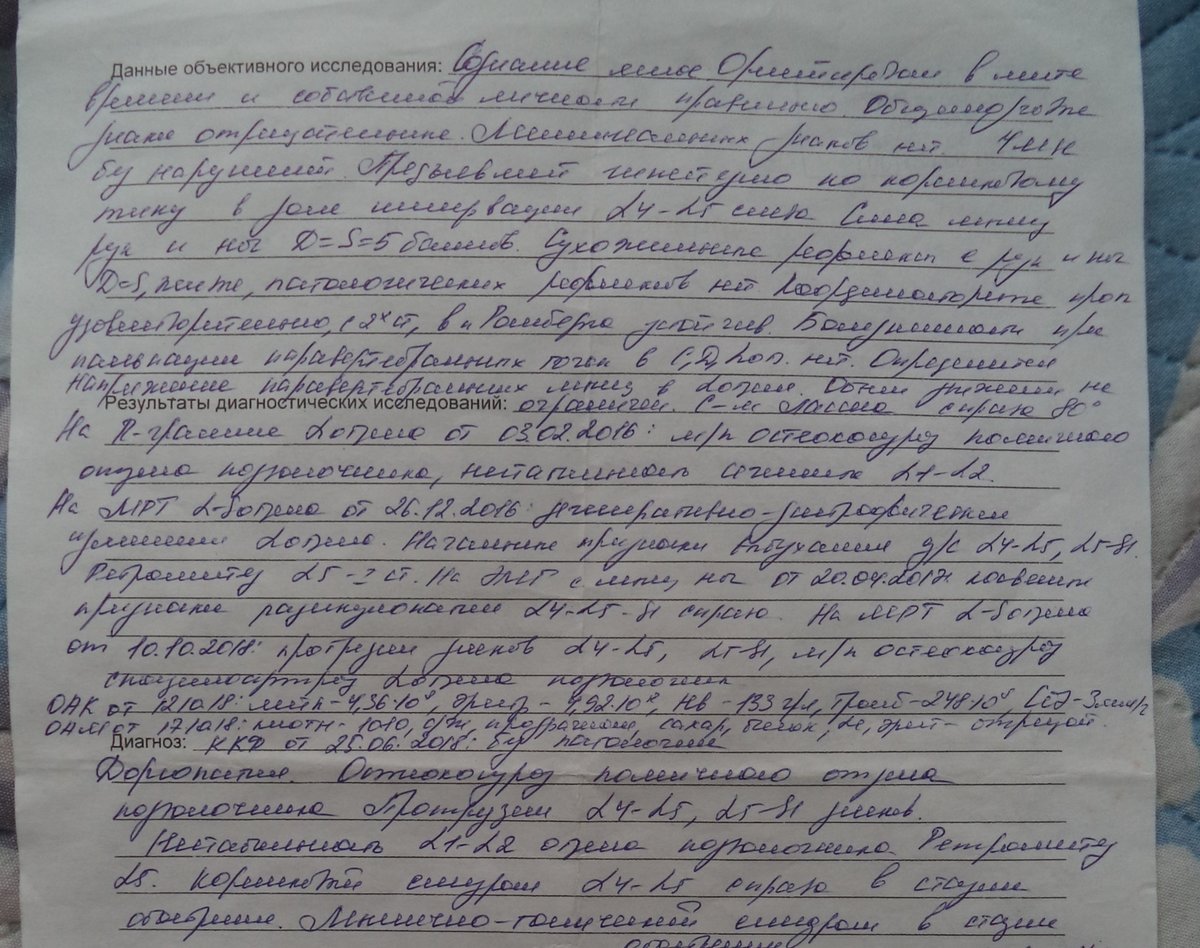 Данные объективного исследования: Сознание ясное Ориентирован в месте
времени и собственной личности правильно. Общемозговые
знаки отрицательные. Менингеальных знаков нет ЧМН
без нарушений. Предъявляет гипестезию по корешковому
типу в зоне иннервации L4-L5 справа Сила мышц
рук и ног D=S=5 баллов. Сухожильные рефлексы с рук и ног
D=S, живые, патологических рефлексов нет Координаторные проп
удовлетворительно, с 2х ст, в п Ромберга устойчив. Болезненности при
пальпации паравертебральных точек в С, Д, поп. нет. Определяется
напряжение паравертебральных мышц в L отделе. Объем движений не
Результаты диагностических исследований: ограничен. С-м Ласега справа 80°
На R-грамме L отдела от 03.02.2016: м/п остеохондроз поясничного
отдела позвоночника, нестабильность сегмента L1-L2.
На МРТ L-отдела от 26.12.2016: дегенеративно-дистрофические
изменения L отдела. Начальные признаки выбухания д/с L4-L5, L5-S1.
Ретролистез L5-I ст. На ЭМГ с мышц ног от 20.04.2017г косвенные
признаки радикулопатии L4-L5-S1 справа. На МРТ L-отдела
от 10.10.2018: протрузии дисков L4-L5, L5-S1, м/п остеохондроз
спондилоартроз L отдела позвоночника
ОАК от 121018: лейк-4,36·10⁹, эритр-4,92·10¹², Нв-133 г/л, тромб-248·10⁹, СОЭ-3мм/ч
ОАМ от 171018: плотн-1010, с/ж, прозрачная, сахар, белок, Le, эрит-отрицат.
Диагноз: ККФ от 25.06.2018: без патологии
Дорсопатия. Остеохондроз поясничного отдела
позвоночника Протрузии L4-L5, L5-S1 дисков.
Нестабильность L1-L2 отдела позвоночника Ретролистез
L5. Корешковый синдром L4-L5 справа в стадии
обострения. Мышечно-тонический синдром в стадии
обострения